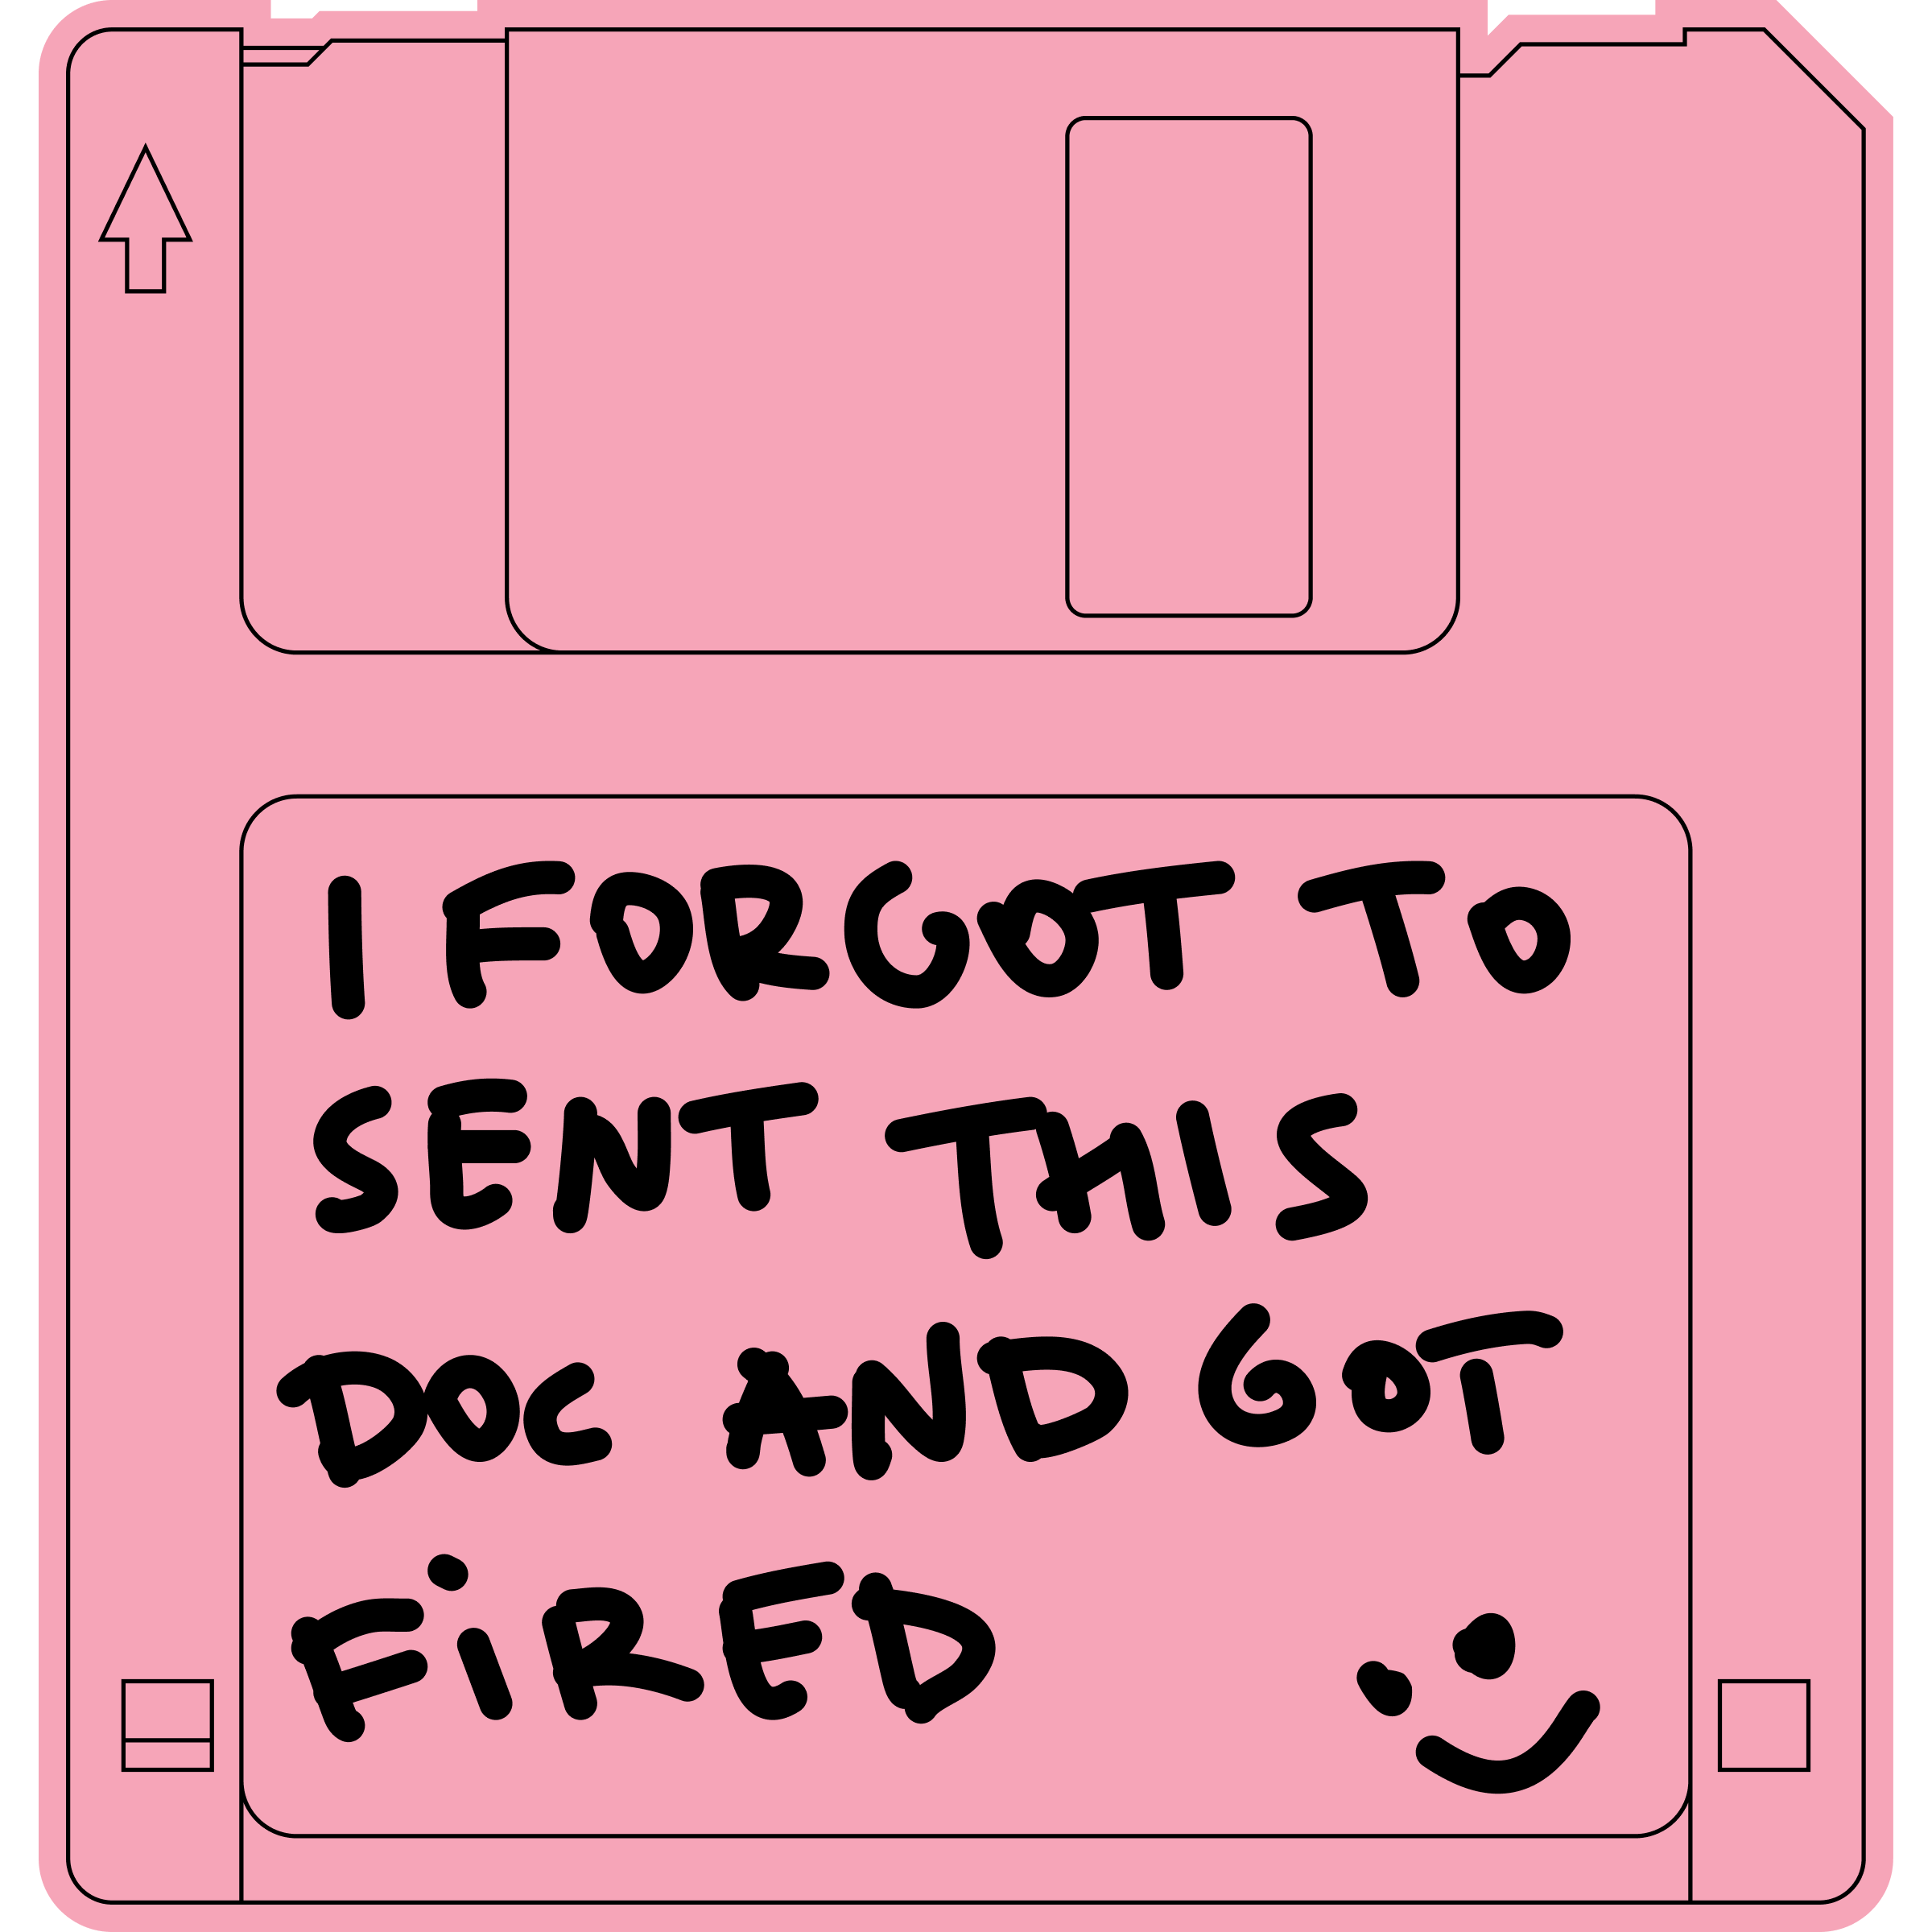 I FORGOT TO
SENT THIS
DOC AND GOT
FiRED :)